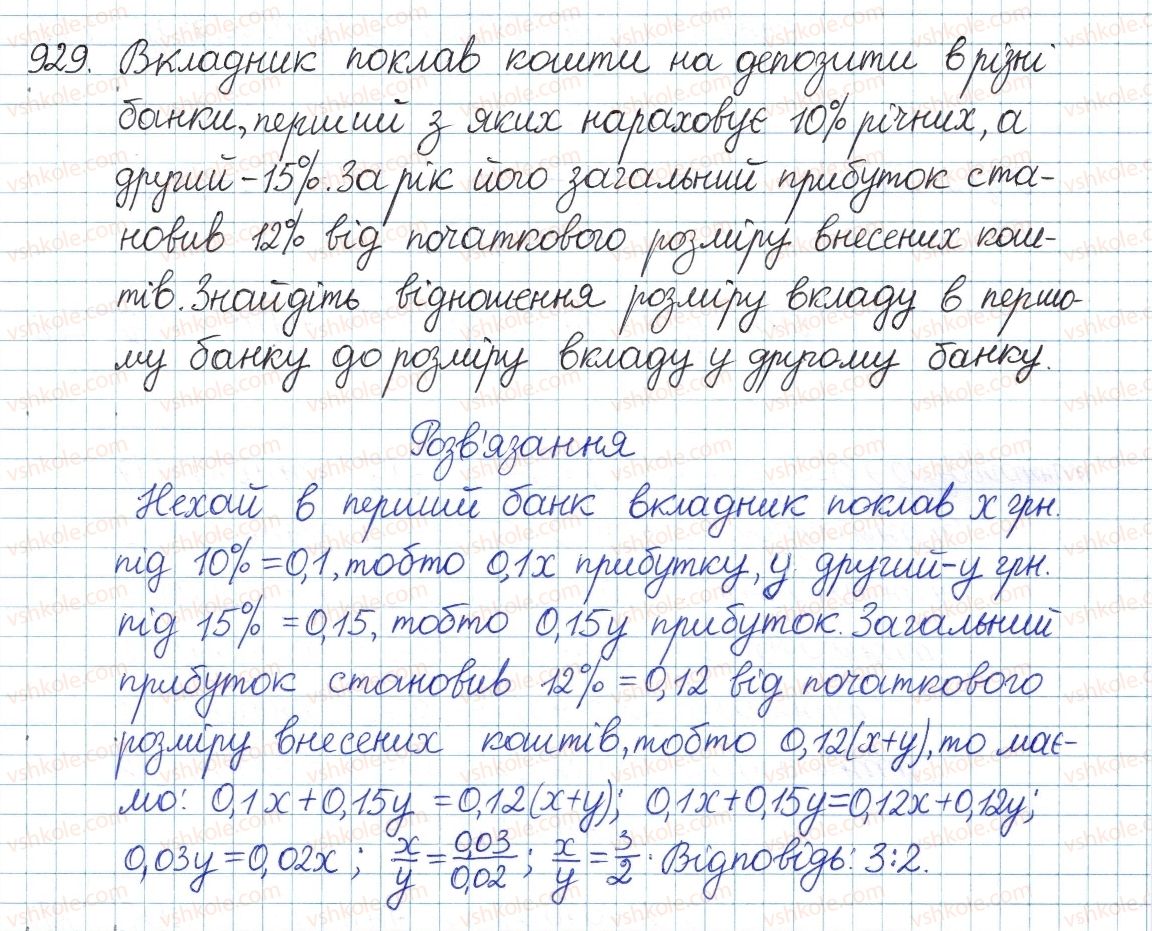 929. Вкладник поклав кошти на депозити в різні
банки, перший з яких нараховує 10% річних, а
другий - 15%. За рік його загальний прибуток ста-
новив 12% від початкового розміру внесених кош-
тів. Знайдіть відношення розміру вкладу в першо-
му банку до розміру вкладу у другому банку.
Розв'язання
Нехай в перший банк вкладник поклав x грн.
під 10% = 0,1, тобто 0,1x прибутку, у другий - y грн.
під 15% = 0,15, тобто 0,15y прибуток. Загальний
прибуток становив 12% = 0,12 від початкового
розміру внесених коштів, тобто 0,12(x+y), то має-
мо: 0,1x + 0,15y = 0,12(x+y); 0,1x + 0,15y = 0,12x + 0,12y;
0,03y = 0,02x; x/y = 0,03/0,02; x/y = 3/2. Відповідь: 3:2.